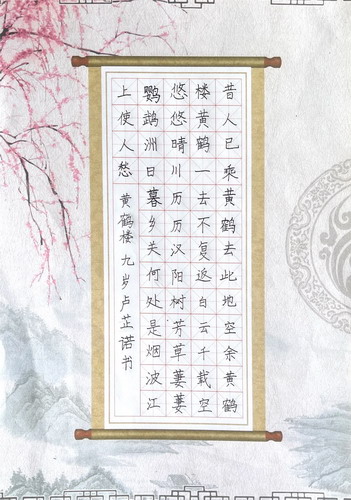 昔人已乘黄鹤去此地空余黄鹤
楼黄鹤一去不复返白云千载空
悠悠晴川历历汉阳树芳草萋萋
鹦鹉洲日暮乡关何处是烟波江
上使人愁 黄鹤楼 九岁卢芷诺书